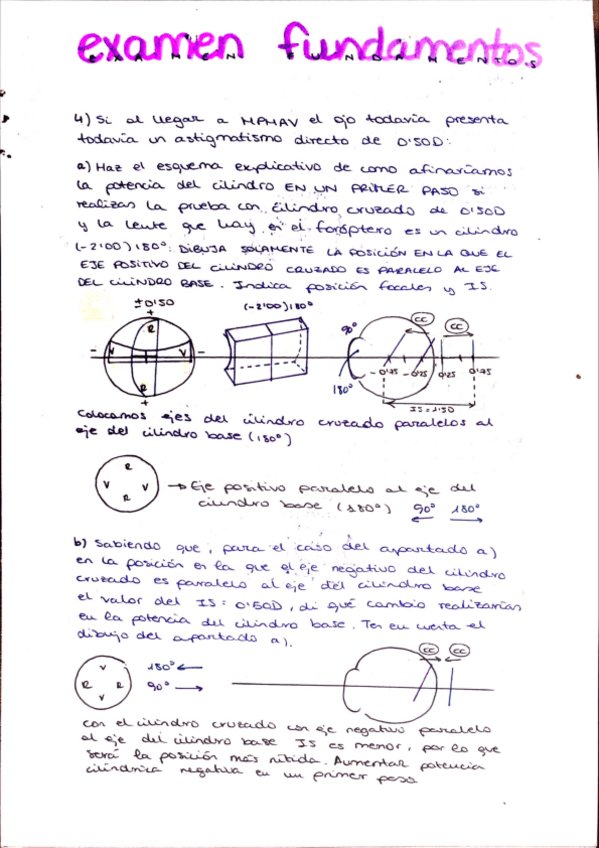 examen fundamentos
EXAMEN FUNDAMENTOS
4) Si al llegar a MPMAV el ojo todavía presenta
todavía un astigmatismo directo de 0'50D:
a) Haz el esquema explicativo de como afinaríamos
la potencia del cilindro EN UN PRIMER PASO si
realizas la prueba con cilindro cruzado de 0'50D
y la lente que hay en el foróptero es un cilindro
(-2'00)180º: DIBUJA SOLAMENTE LA POSICIÓN EN LA QUE EL
EJE POSITIVO DEL CILINDRO CRUZADO ES PARALELO AL EJE
DEL CILINDRO BASE. Indica posición focales y IS.
±0'50
(-2'00)180º
+
R
- V V -
R
+
90º
180º
CC CC
-0'75 -0'25 0'25 0'75
IS=1.50
Colocamos ejes del cilindro cruzado paralelos al
eje del cilindro base (180º)
R
V V
R
→ Eje positivo paralelo al eje del
cilindro base (180º) 90º 180º
← →
b) Sabiendo que, para el caso del apartado a)
en la posición en la que el eje negativo del cilindro
cruzado es paralelo al eje del cilindro base
el valor del IS = 0'50D, di qué cambio realizarías
en la potencia del cilindro base. Ten en cuenta el
dibujo del apartado a).
V
R R
V
180º ←
90º →
CC CC
→ ←
con el cilindro cruzado con eje negativo paralelo
al eje del cilindro base IS es menor, por lo que
será la posición más nítida. Aumentar potencia
cilíndrica negativa en un primer paso